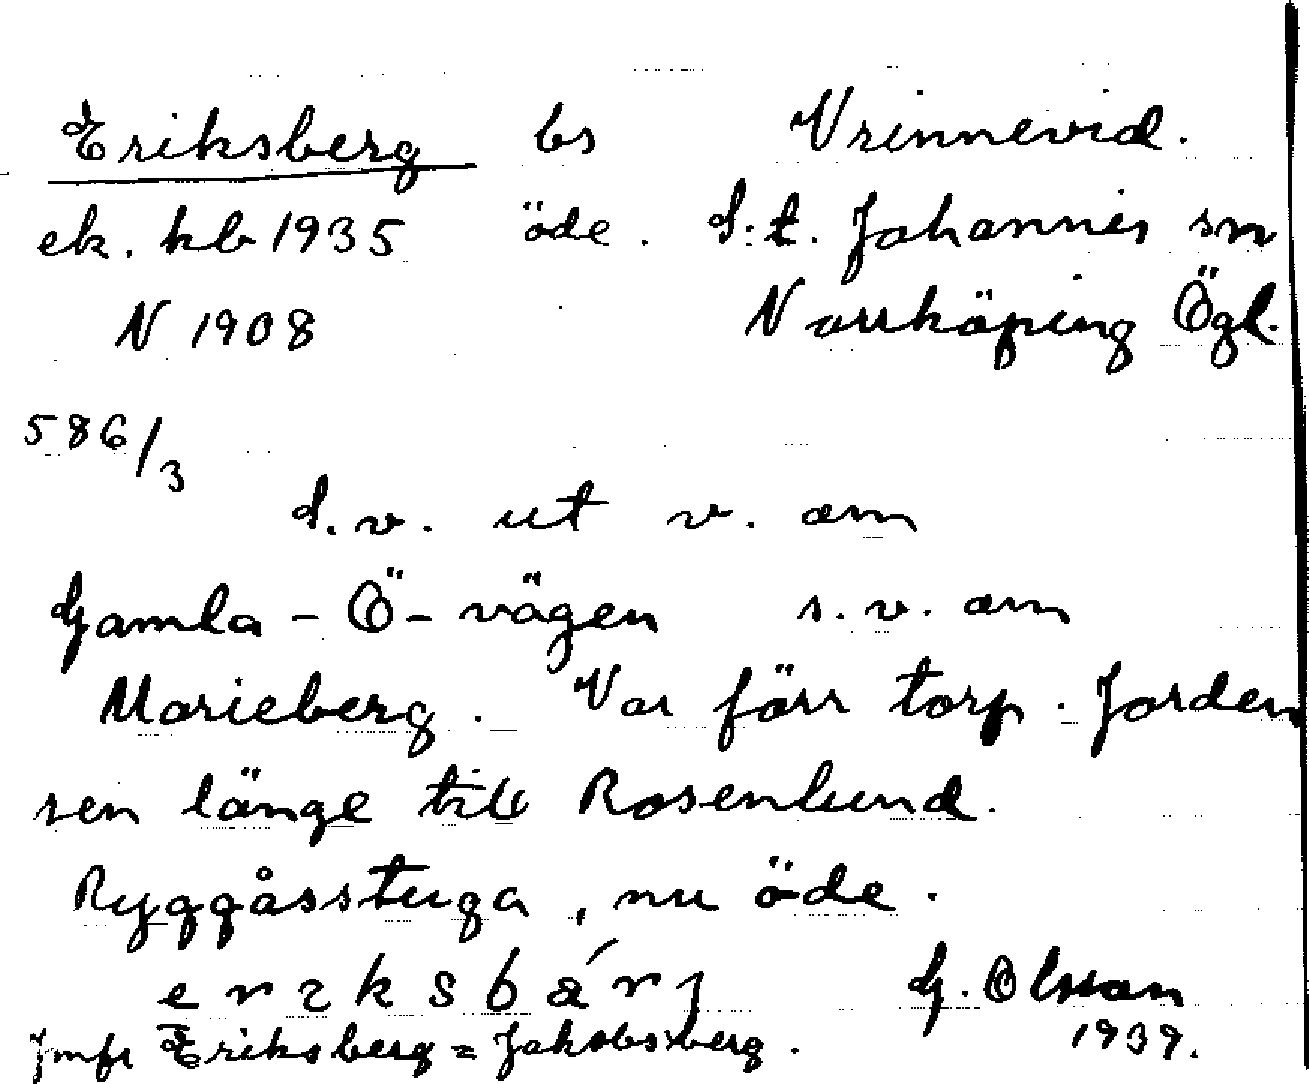 Eriksberg bs Vrinnevid.
ek. kb 1935 öde. S:t. Johannes sn
N 1908 Norrköping Ögl.
586/3
S.v. ut v. om
Gamla-Ö-vägen s.v. om
Marieberg. Var förr torp. Jorden
sen länge till Rosenlund.
Ryggåsstuga, nu öde.
erıksbá̈rj G. Olsson
Jmfr Eriksberg = Jakobsberg. 1939.